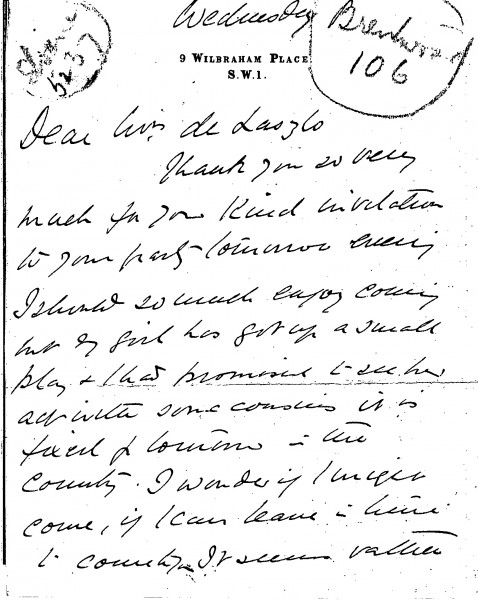 Wednesday
Brentwood
106
5237
9 WILBRAHAM PLACE
S.W.1.
Dear Mrs de Laszlo
Thank you so very
much for your kind invitation
to your party tomorrow evening
I should so much enjoy coming
but my girl has got up a small
play & I had promised to see her
act with some cousins it is
fixed for tomorrow in the
country. I wonder if I might
come, if I can leave in time
to country. It seems rather